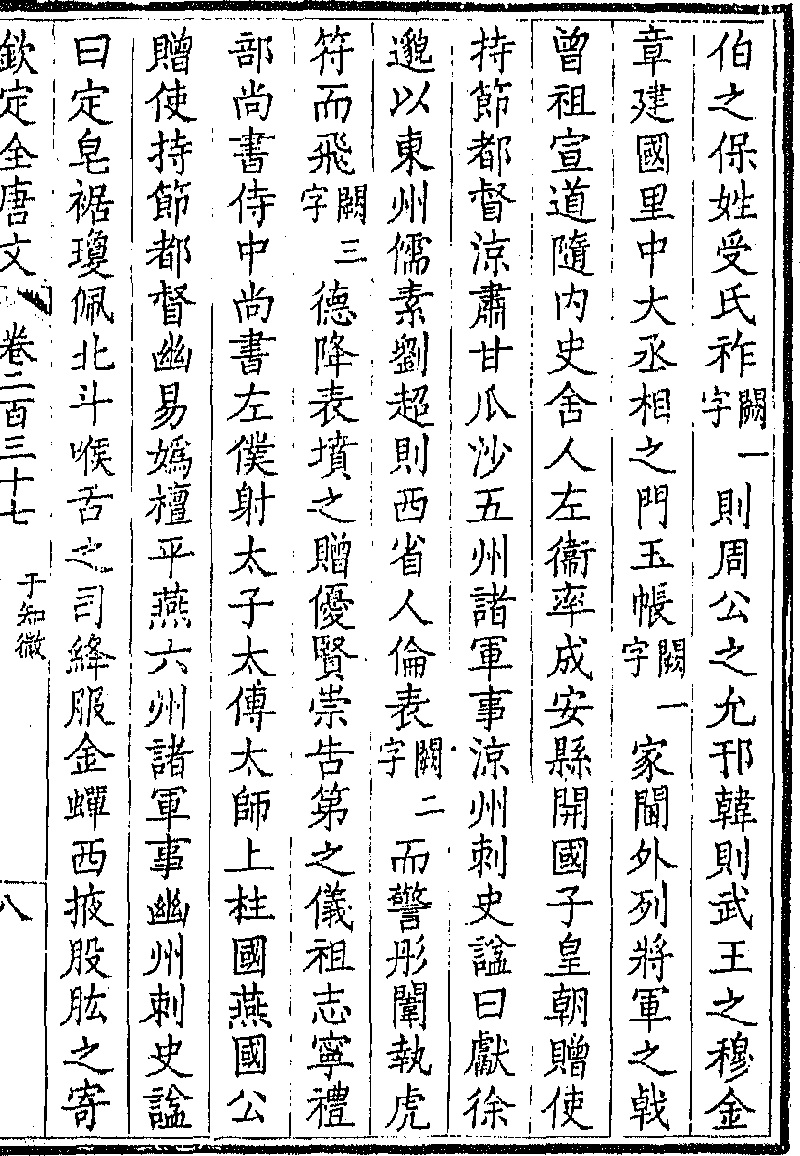 伯之保姓受氏祚闕一字則周公之允邗韓則武王之穆金
章建國里中大丞相之門玉帳闕一字家閫外列將軍之戟
曾祖宣道隨内史舍人左衞率成安縣開國子皇朝贈使
持節都督涼肅甘瓜沙五州諸軍事涼州刺史諡曰獻徐
邈以東州儒素劉超則西省人倫表闕二字而警彤闈執虎
符而飛闕三字德降表墳之贈優賢崇告第之儀祖志寧禮
部尚書侍中尚書左僕射太子太傅太師上柱國燕國公
贈使持節都督幽易嬀檀平燕六州諸軍事幽州刺史諡
曰定皂裾瓊佩北斗喉舌之司絳服金蟬西掖股肱之寄
欽定全唐文 卷二百三十七 于知微 八